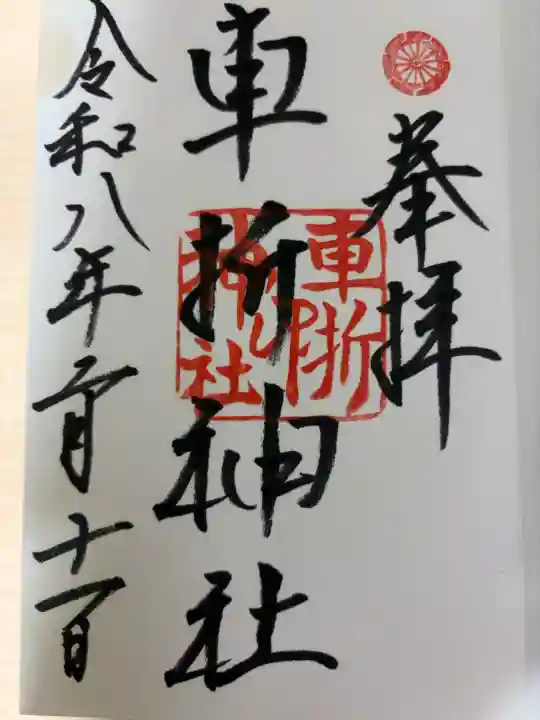 奉拝
車折神社
車折神社之印
令和八年二月十一日